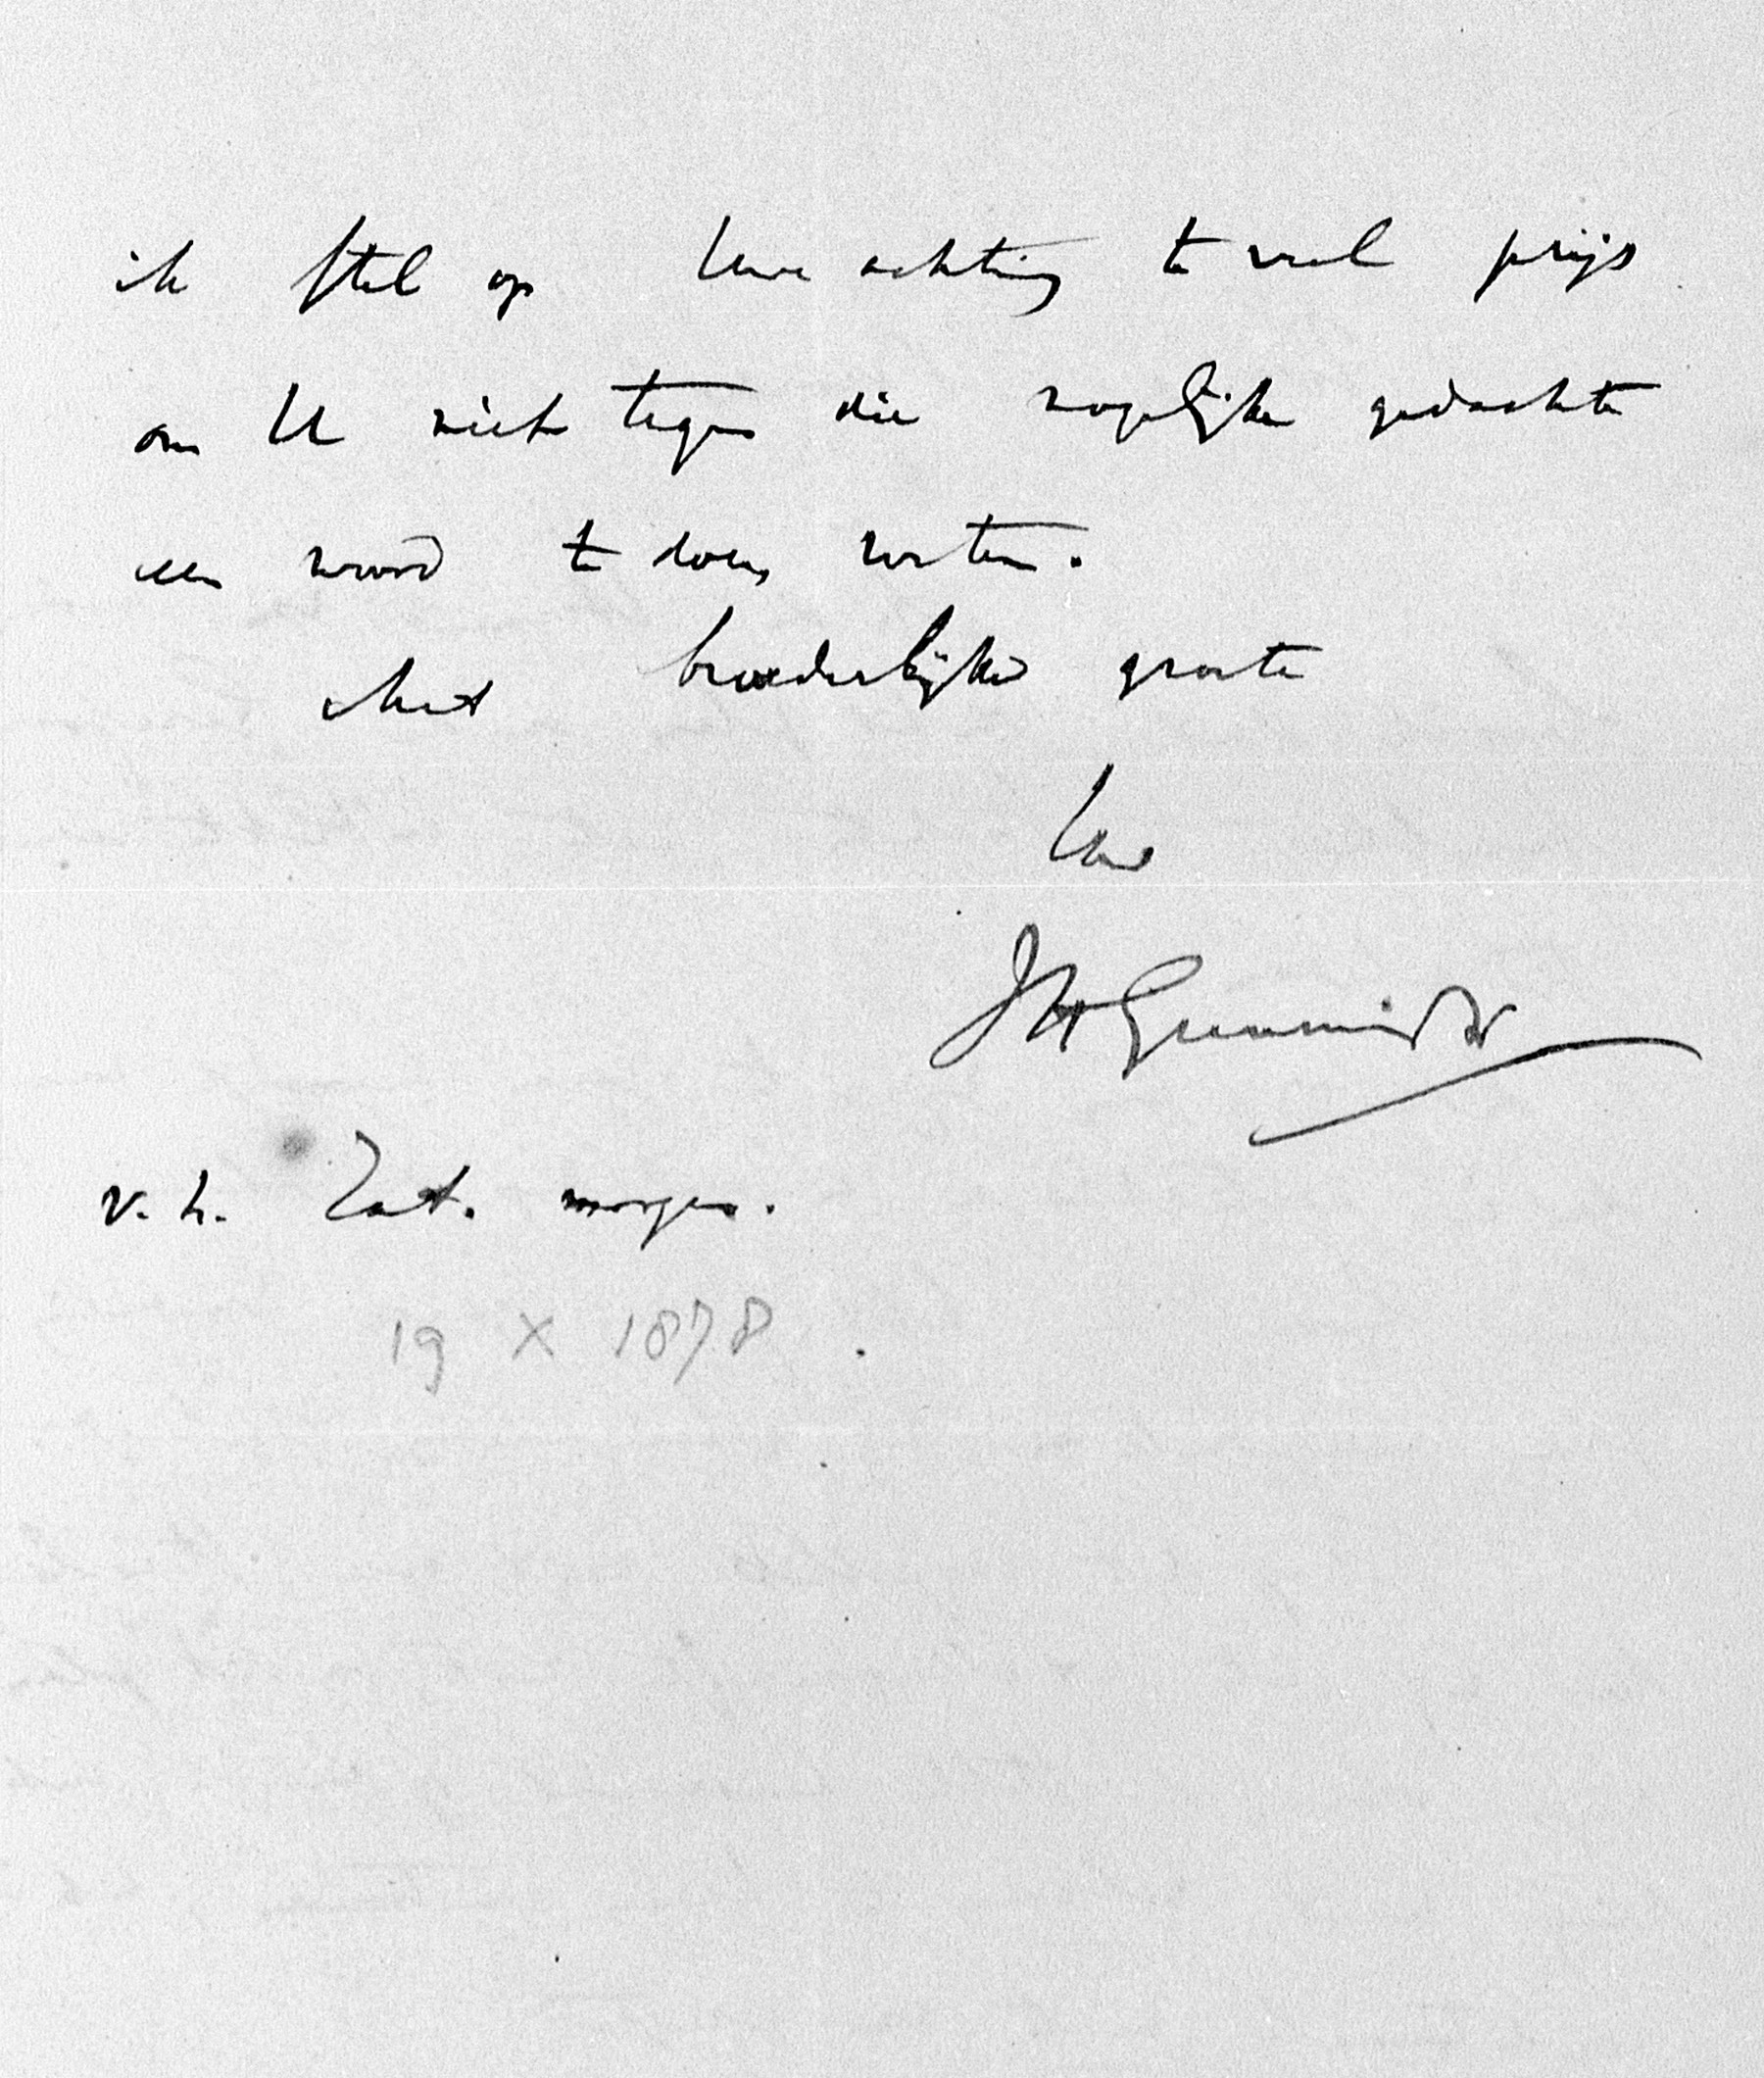 ik stel op Uwe achting te veel prijs
om U niet tegen die mogelijke gedachte
een woord te doen weten.
Met broederlijke groete
Uwe
JH Gunning Jr
v. h. Zat. morgen.
19 X 1878